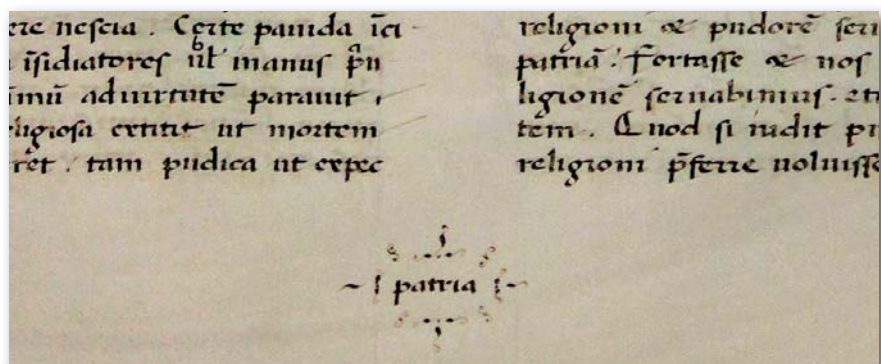 ere nescia. Certe pauida īci
īsidiatores ul manus
īmū aduirtutē parauit
eligiosa extitit ut mortem
rēt. tam pudica ut expec
religioni & pudorē seru
patriā. fortasse & nos
ligionē seruabimus. et
tēm. Quod si iudit pu
religioni p̄ferre uoluisse
patria